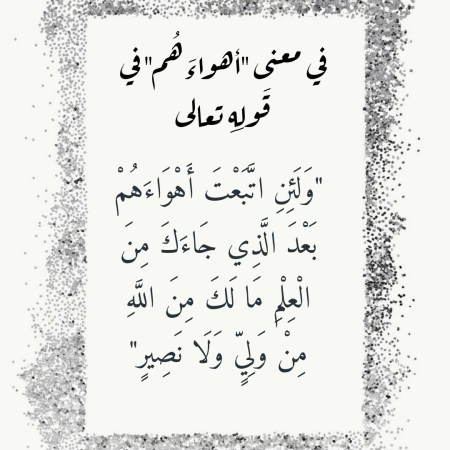 في معنى "أهواءَ هُم" في
قَولِهِ تعالى
"وَلَئِنِ اتَّبَعْتَ أَهْوَاءَهُمْ
بَعْدَ الَّذِي جَاءَكَ مِنَ
الْعِلْمِ مَا لَكَ مِنَ اللَّهِ
مِنْ وَلِيٍّ وَلَا نَصِيرٍ"